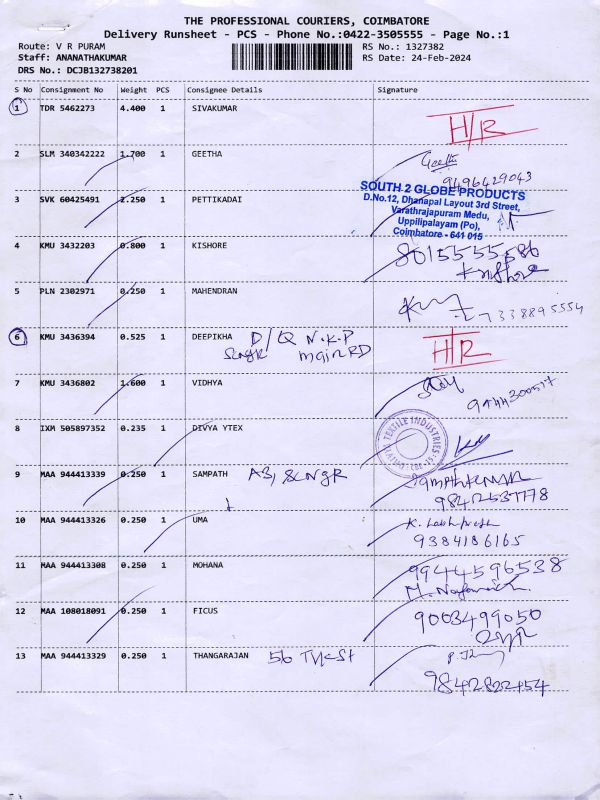 THE PROFESSIONAL COURIERS, COIMBATORE
Delivery Runsheet - PCS - Phone No.:0422-3505555 - Page No.:1
Route: V R PURAM
RS No.: 1327382
Staff: ANANATHAKUMAR
RS Date: 24-Feb-2024
DRS No.: DCJB132738201
S No Consignment No Weight PCS Consignee Details Signature
1 TDR 5462273 4.400 1 SIVAKUMAR
H/R
2 SLM 340342222 1.700 1 GEETHA
Geetha
9496429043
3 SVK 60425491 2.250 1 PETTIKADAI
SOUTH 2 GLOBE PRODUCTS
D.No.12, Dhanapal Layout 3rd Street,
Varathrajapuram Medu,
Uppilipalayam (Po),
Coimbatore - 641 015
4 KMU 3432203 0.800 1 KISHORE
8015555586
Kishore
5 PLN 2302971 0.250 1 MAHENDRAN
7338895554
6 KMU 3436394 0.525 1 DEEPIKHA D/Q N.K.P
SLNGR main RD
H/R
7 KMU 3436802 1.600 1 VIDHYA
9444300517
8 IXM 505897352 0.235 1 DIVYA YTEX
TEXTILE INDUSTRIES
9 MAA 944413339 0.250 1 SAMPATH A3, SLNGR
9842537178
10 MAA 944413326 0.250 1 UMA
9384186165
11 MAA 944413308 0.250 1 MOHANA
9944596538
12 MAA 108018091 0.250 1 FICUS
9003499050
13 MAA 944413329 0.250 1 THANGARAJAN 56
9842822454